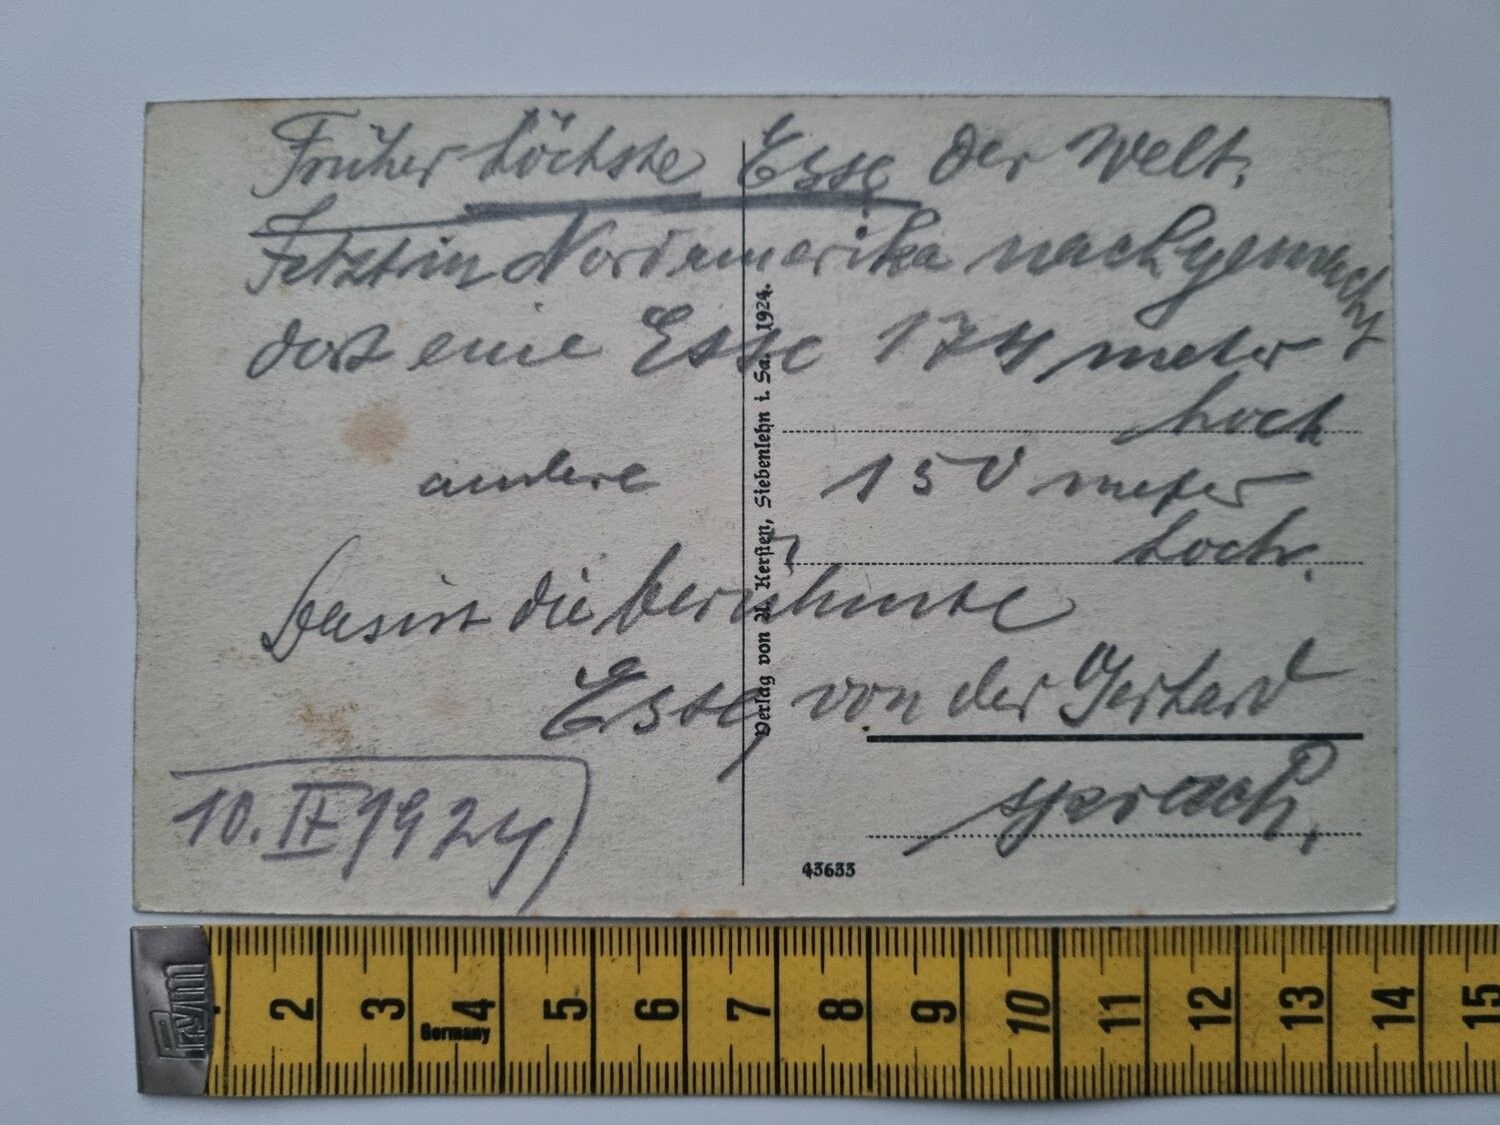 Früher höchste Esse der Welt.
Jetzt in Nordamerika nachgemacht
dort eine Esse 174 meter
hoch
andere 150 meter
hoch.
Das ist die berühmte
Esse, von der Gerhard
sprach.
10. IX 1924
Verlag von A. Kersten, Siebenlehn i. Sa. 1924.
43633
Prym
2 3 4 5 6 7 8 9 10 11 12 13 14 15
Germany